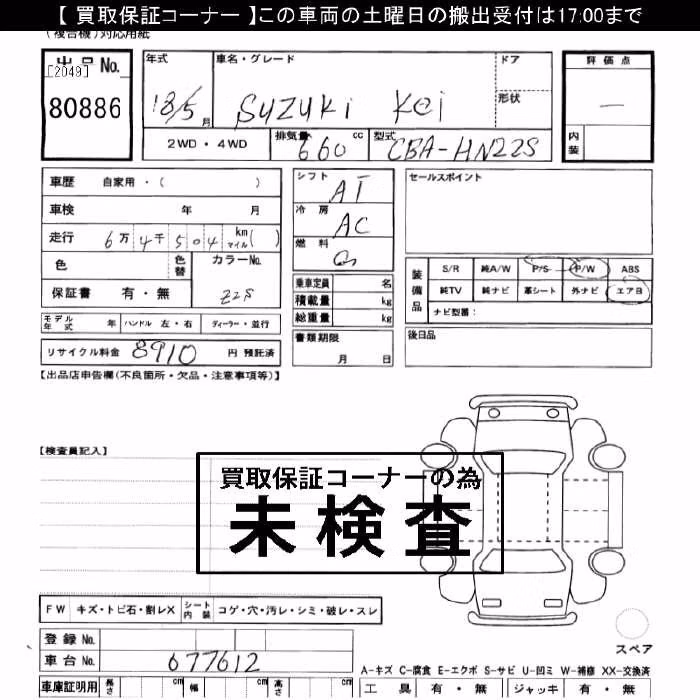 【 買取保証コーナー 】この車両の土曜日の搬出受付は17:00まで
(複合機)対応用紙
出品 No.
[2049]
80886
年式
18/5
月
車名・グレード
SUZUKI Kei
ドア
形状
評価点
—
内装
2WD・4WD
排気量
660
cc
型式
CBA-HN22S
車歴 自家用・( )
車検 年 月
走行 6万4千504 km マイル( )
色
色替
カラーNo.
Z2S
保証書 有・無
モデル年式 年 ハンドル 左・右 ディーラー・並行
リサイクル料金 8910 円 預託済
シフト
AT
冷房
AC
燃料
G
乗車定員 名
積載量 kg
総重量 kg
書類期限
月 日
セールスポイント
装備品
S/R 純A/W P/S P/W ABS
純TV 純ナビ 革シート 外ナビ エアB
ナビ型番:
後日品
【出品店申告欄(不良箇所・欠品・注意事項等)】
【検査員記入】
買取保証コーナーの為
未検査
FW キズ・トビ石・割レX シート内装 コゲ・穴・汚レ・シミ・破レ・スレ
登録 No.
車台 No. 677612
車庫証明用 長さ cm 幅 cm 高さ cm
スペア
A-キズ C-腐食 E-エクボ S-サビ U-凹ミ W-補修 XX-交換済
工具 有・無 ジャッキ 有・無